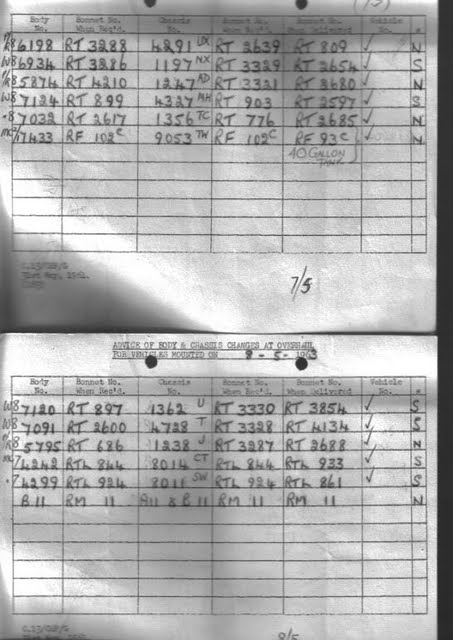 Body No. Bonnet No. When Rec'd. Chassis No. Bonnet No. When Rec'd. Bonnet No. When Delivered Vehicle No.
R8 6198 RT 3288 4291 UX RT 2639 RT 809 ✓ N
W8 6934 RT 3286 1197 NX RT 3329 RT 2654 ✓ S
R8 5874 RT 4210 1247 AD RT 3321 RT 2680 ✓ N
W8 7124 RT 899 4327 MH RT 903 RT 2597 ✓ S
8 7032 RT 2617 1356 TC RT 776 RT 2685 ✓ N
7433 RF 102c 9053 TW RF 102c RF 93c ✓ N
40 GALLON
TANK
31st May, 1961.
7/5
ADVICE OF BODY & CHASSIS CHANGES AT OVERHAUL
FOR VEHICLES MOUNTED ON 8 - 5 - 1963
Body No. Bonnet No. When Rec'd. Chassis No. Bonnet No. When Rec'd. Bonnet No. When Delivered Vehicle No. *
W8 7120 RT 897 1362 U RT 3330 RT 3854 ✓ S
W8 7091 RT 2600 4728 T RT 3328 RT 4134 ✓ S
R8 5795 RT 686 1238 J RT 3287 RT 2688 ✓ N
7 4242 RTL 844 8014 CT RTL 844 RTL 933 ✓ S
7 4299 RTL 924 8011 SW RTL 924 RTL 861 ✓ S
B 11 RM 11 A11 & B 11 RM 11 RM 11 N
8/5